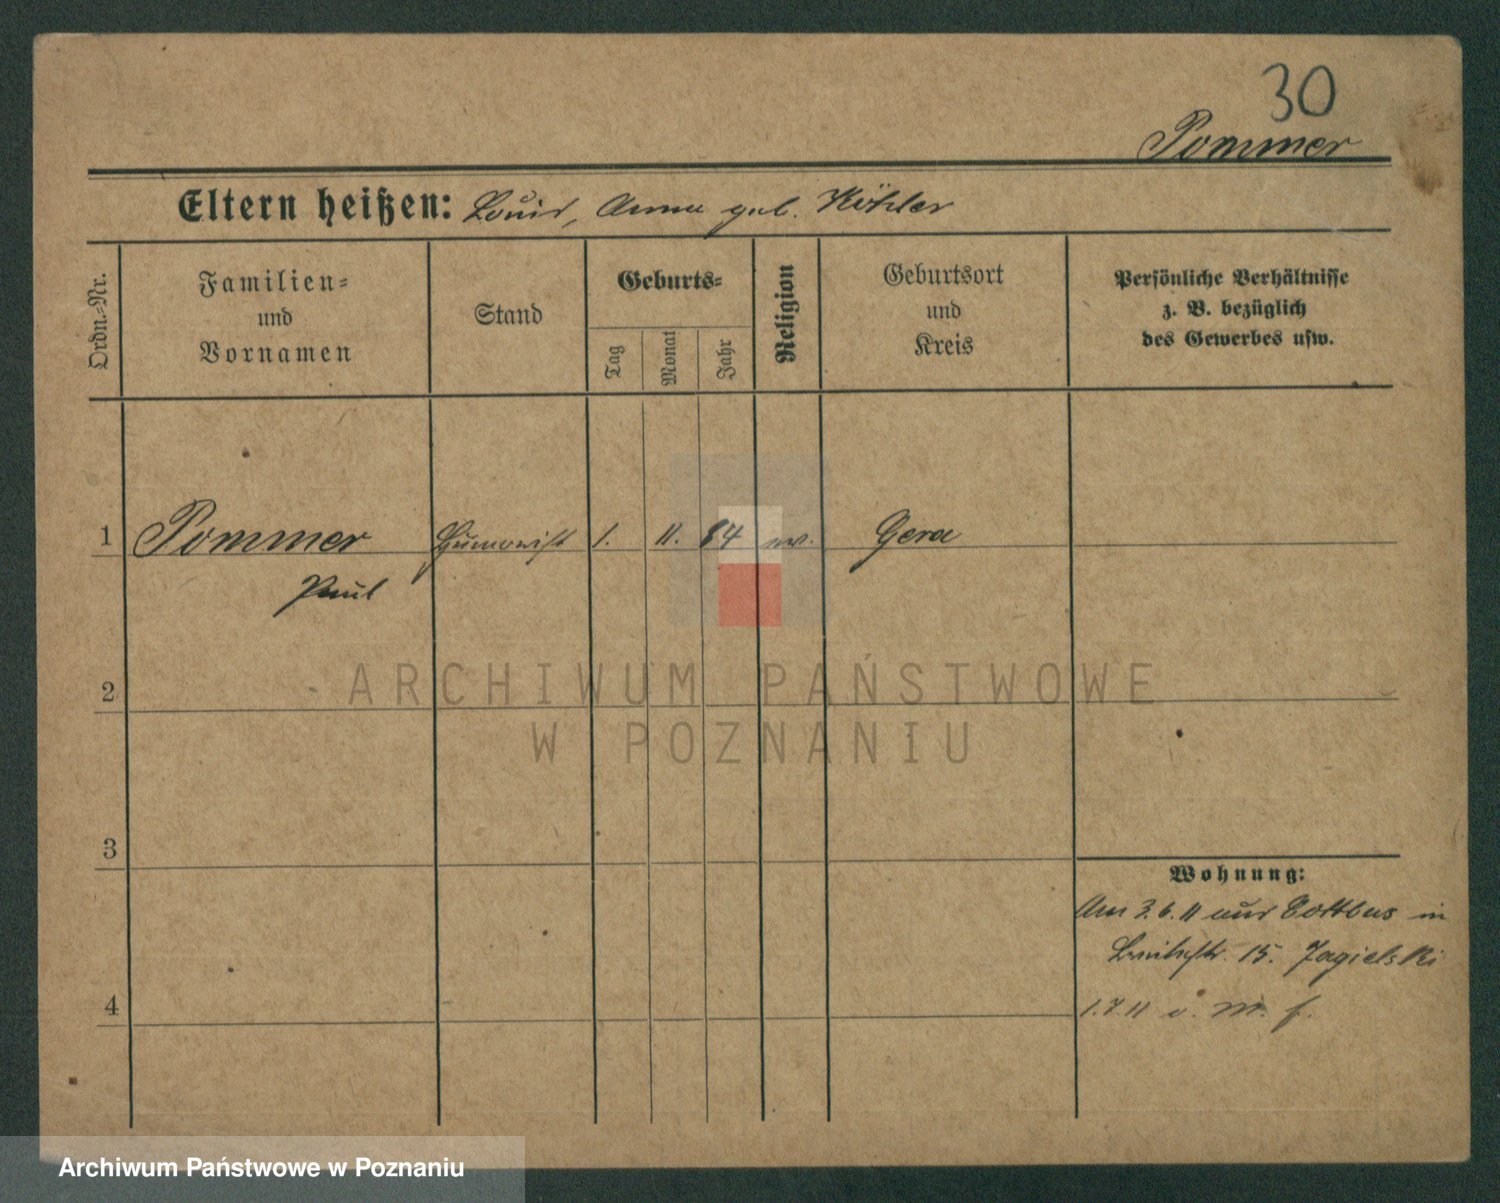 30
Pommer
Eltern heißen: Louis, Anna geb. Köhler
Ordn.-Nr.
Familien-
und
Vornamen
Stand
Geburts-
Tag
Monat
Jahr
Religion
Geburtsort
und
Kreis
Persönliche Verhältnisse
z. B. bezüglich
des Gewerbes usw.
1 Pommer Humorist 1. 11. 84 ev. Gera
Paul
2
3
4
Wohnung:
Am 3.6.11 aus Cottbus in
Breitestr. 15. Jagielski
1.7.11
ARCHIWUM PAŃSTWOWE
W POZNANIU
Archiwum Państwowe w Poznaniu